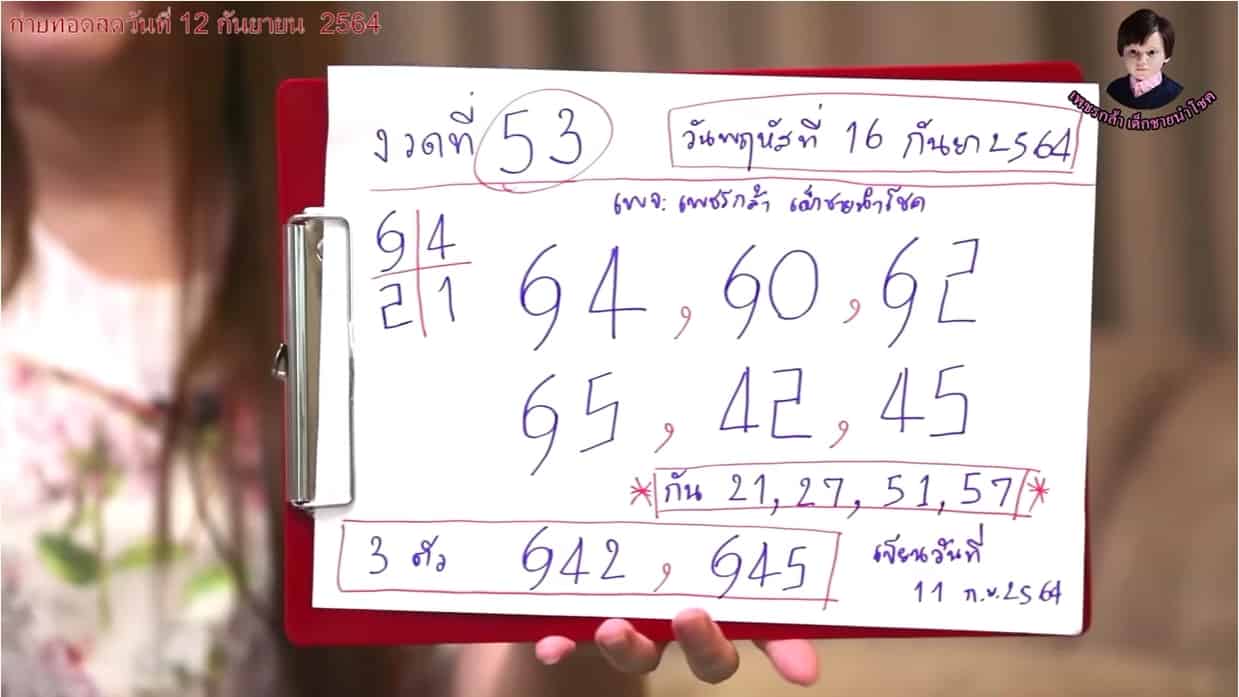 ถ่ายทอดสดวันที่ 12 กันยายน 2564
เพชรกล้า เด็กชายนำโชค
งวดที่ 53
วันพฤหัสที่ 16 กันยา 2564
เพจ: เพชรกล้า เด็กชายนำโชค
64
21
64, 60, 62
65, 42, 45
* กัน 21, 27, 51, 57 *
3 ตัว 642, 645
เขียนวันที่
11 ก.ย. 2564